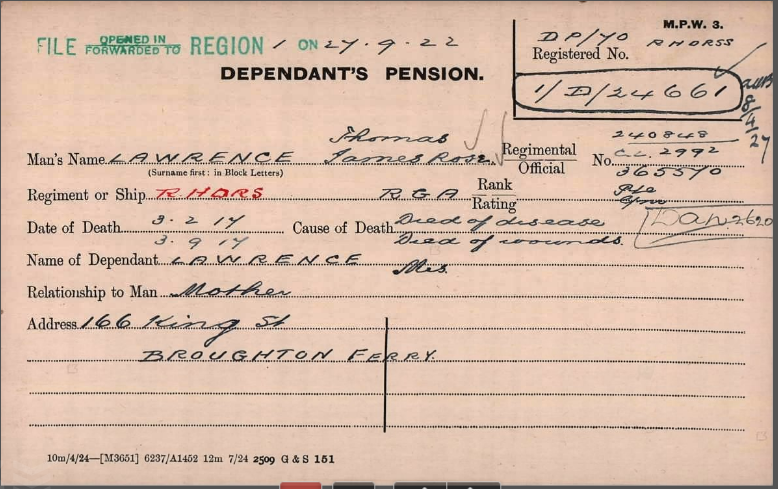 M.P.W. 3.
FILE OPENED IN FORWARDED TO REGION 1 ON 27.9.22
DP/YO
Registered No. RHDRSS
DEPENDANT'S PENSION.
1/D/24661
8/4/27
Thomas
240848
Man's Name LAWRENCE James Rose Regimental Official No. 2992
(Surname first: in Block Letters)
365570
Regiment or Ship RHDRS RGA Rank Rating Pte
Gnr
Date of Death 3.2.17 Cause of Death Died of disease
3.9.17 Died of wounds.
Name of Dependant LAWRENCE Mrs.
Relationship to Man Mother
Address 166 King St
BROUGHTON FERRY.
10m/4/24—[M3651] 6237/A1452 12m 7/24 2509 G & S 151